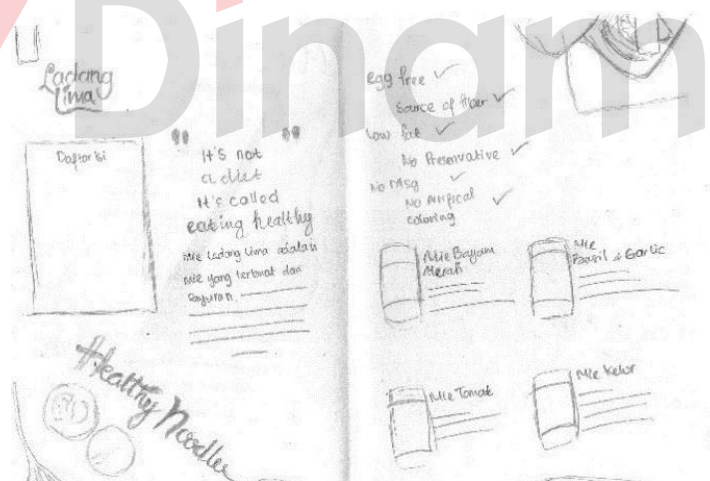 Dinam
Ladang
Lima
Daftar isi
" "
It's not
a diet
It's called
eating healthy
Mie Ladang Lima adalah
Mie yang terbuat dari
Sayuran.
Healthy Noodles
egg free ✓
Source of fiber ✓
Low fat ✓
No Preservative ✓
No Msg ✓
No Artifical ✓
coloring
Mie Bayam
Merah
Mie
Basil & Garlic
Mie Tomat
Mie Kelor